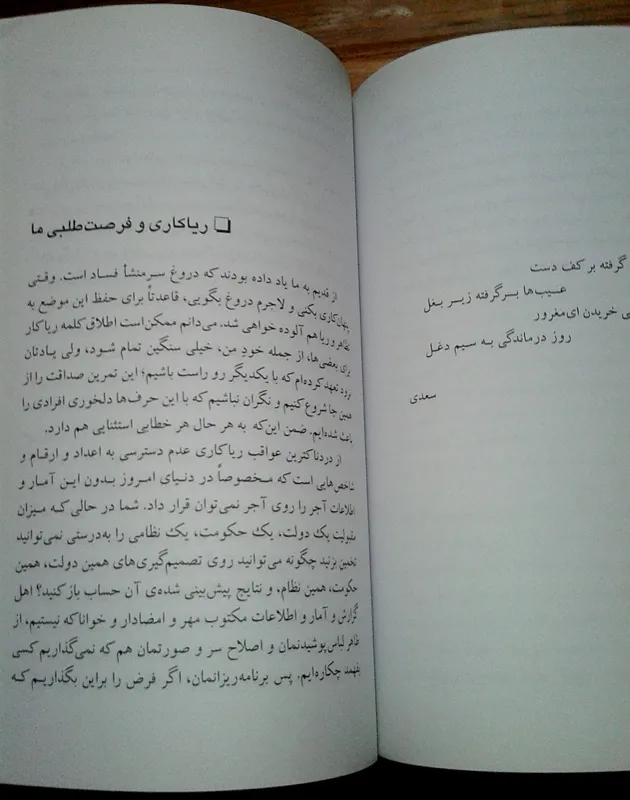 گرفته بر کف دست
عیب‌ها برگرفته زیر بغل
خریدن ای مغرور
روز درماندگی به سیم دغل
سعدی
ریاکاری و فرصت‌طلبی ما
از قدیم به ما یاد داده بودند که دروغ سرمنشأ فساد است. وقتی
پنهان‌کاری بکنی و لاجرم دروغ بگویی، قاعدتاً برای حفظ این موضع به
تظاهر و ریا هم آلوده خواهی شد. می‌دانم ممکن است اطلاق کلمه ریاکار
برای بعضی‌ها، از جمله خودِ من، خیلی سنگین تمام شود، ولی یادتان
نرود تعهد کرده‌ام که با یکدیگر رو راست باشیم؛ این تمرین صداقت را از
همین جا شروع کنیم و نگران نباشیم که با این حرف‌ها دلخوری افرادی را
باعث شده‌ایم. ضمن این‌که به هر حال هر خطابی استثنایی هم دارد.
از دردناکترین عواقب ریاکاری عدم دسترسی به اعداد و ارقام و
شاخص‌هایی است که مخصوصاً در دنیای امروز بدون این آمار و
اطلاعات آجر را روی آجر نمی‌توان قرار داد. شما در حالی که میزان
مقبولیت یک دولت، یک حکومت، یک نظامی را به‌درستی نمی‌توانید
تخمین بزنید چگونه می‌توانید روی تصمیم‌گیری‌های همین دولت، همین
حکومت، همین نظام، و نتایج پیش‌بینی شده‌ی آن حساب باز کنید؟ اهل
گزارش و آمار و اطلاعات مکتوب مهر و امضادار و خوانا که نیستیم، از
ظاهر لباس‌پوشیدنمان و اصلاح سر و صورتمان هم که نمی‌گذاریم کسی
بفهمد چکاره‌ایم. پس برنامه‌ریزانمان، اگر فرض را براین بگذاریم که